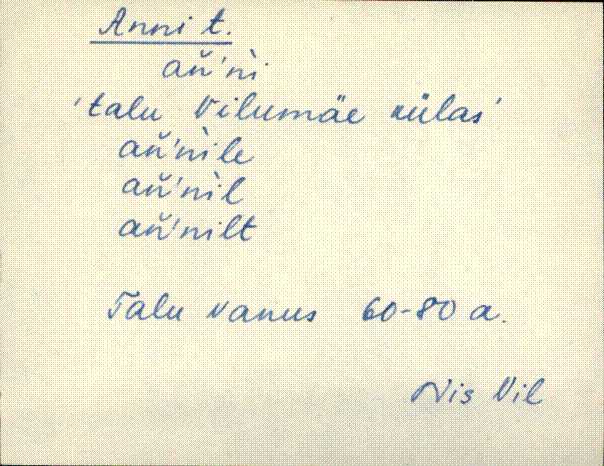 Anni t.
ań'ǹi
'talu Vilumäe külas'
ań'ǹile
ań'ǹil
ań'nilt
Talu vanus 60-80 a.
Nis Vil